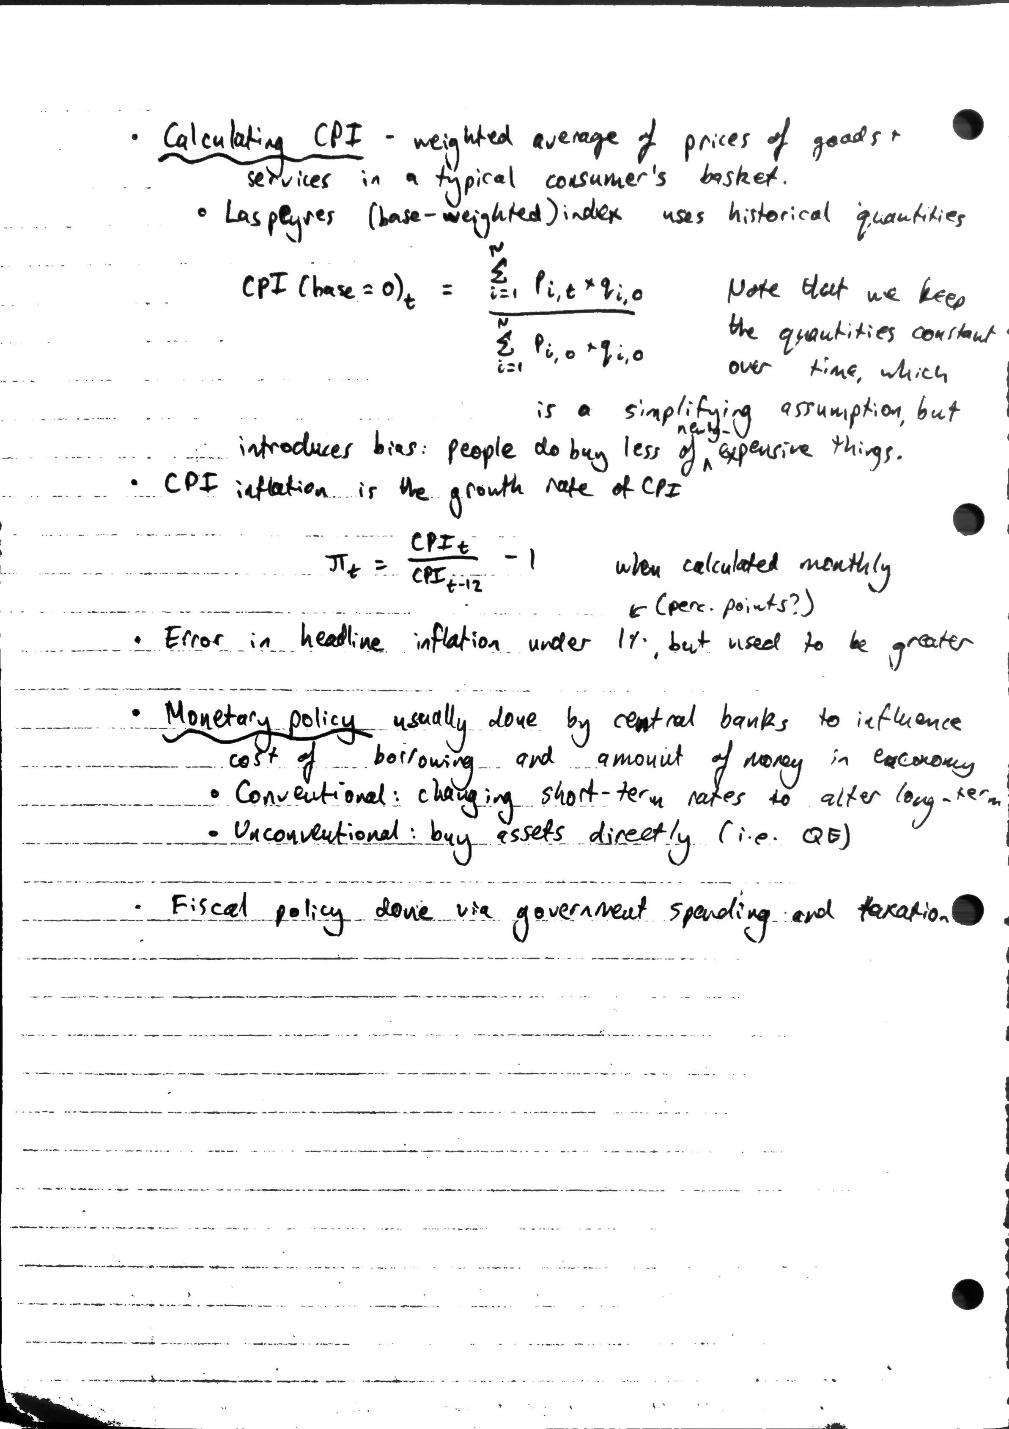 • Calculating CPI - weighted average of prices of goods +
services in a typical consumer's basket.
• Laspeyres (base-weighted) index uses historical quantities
CPI (base = 0)_t = \frac{\sum_{i=1}^{N} P_{i,t} × q_{i,0}}{\sum_{i=1}^{N} P_{i,0} × q_{i,0}}
Note that we keep
the quantities constant
over time, which
is a simplifying assumption, but
introduces bias: people do buy less of newly-expensive things.
• CPI inflation is the growth rate of CPI
π_t = \frac{CPI_t}{CPI_{t-12}} - 1 when calculated monthly
← (perc. points?)
• Error in headline inflation under 1%, but used to be greater
• Monetary policy usually done by central banks to influence
cost of borrowing and amount of money in exconomy
• Conventional: changing short-term rates to alter long-term
• Unconventional: buy assets directly (i.e. QE)
• Fiscal policy done via government spending and taxation